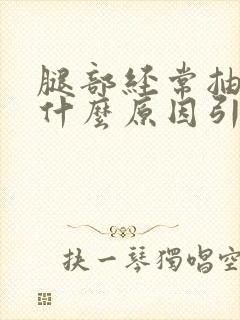 腿部經常抽
什麼原因引
抉一琴獨唱空